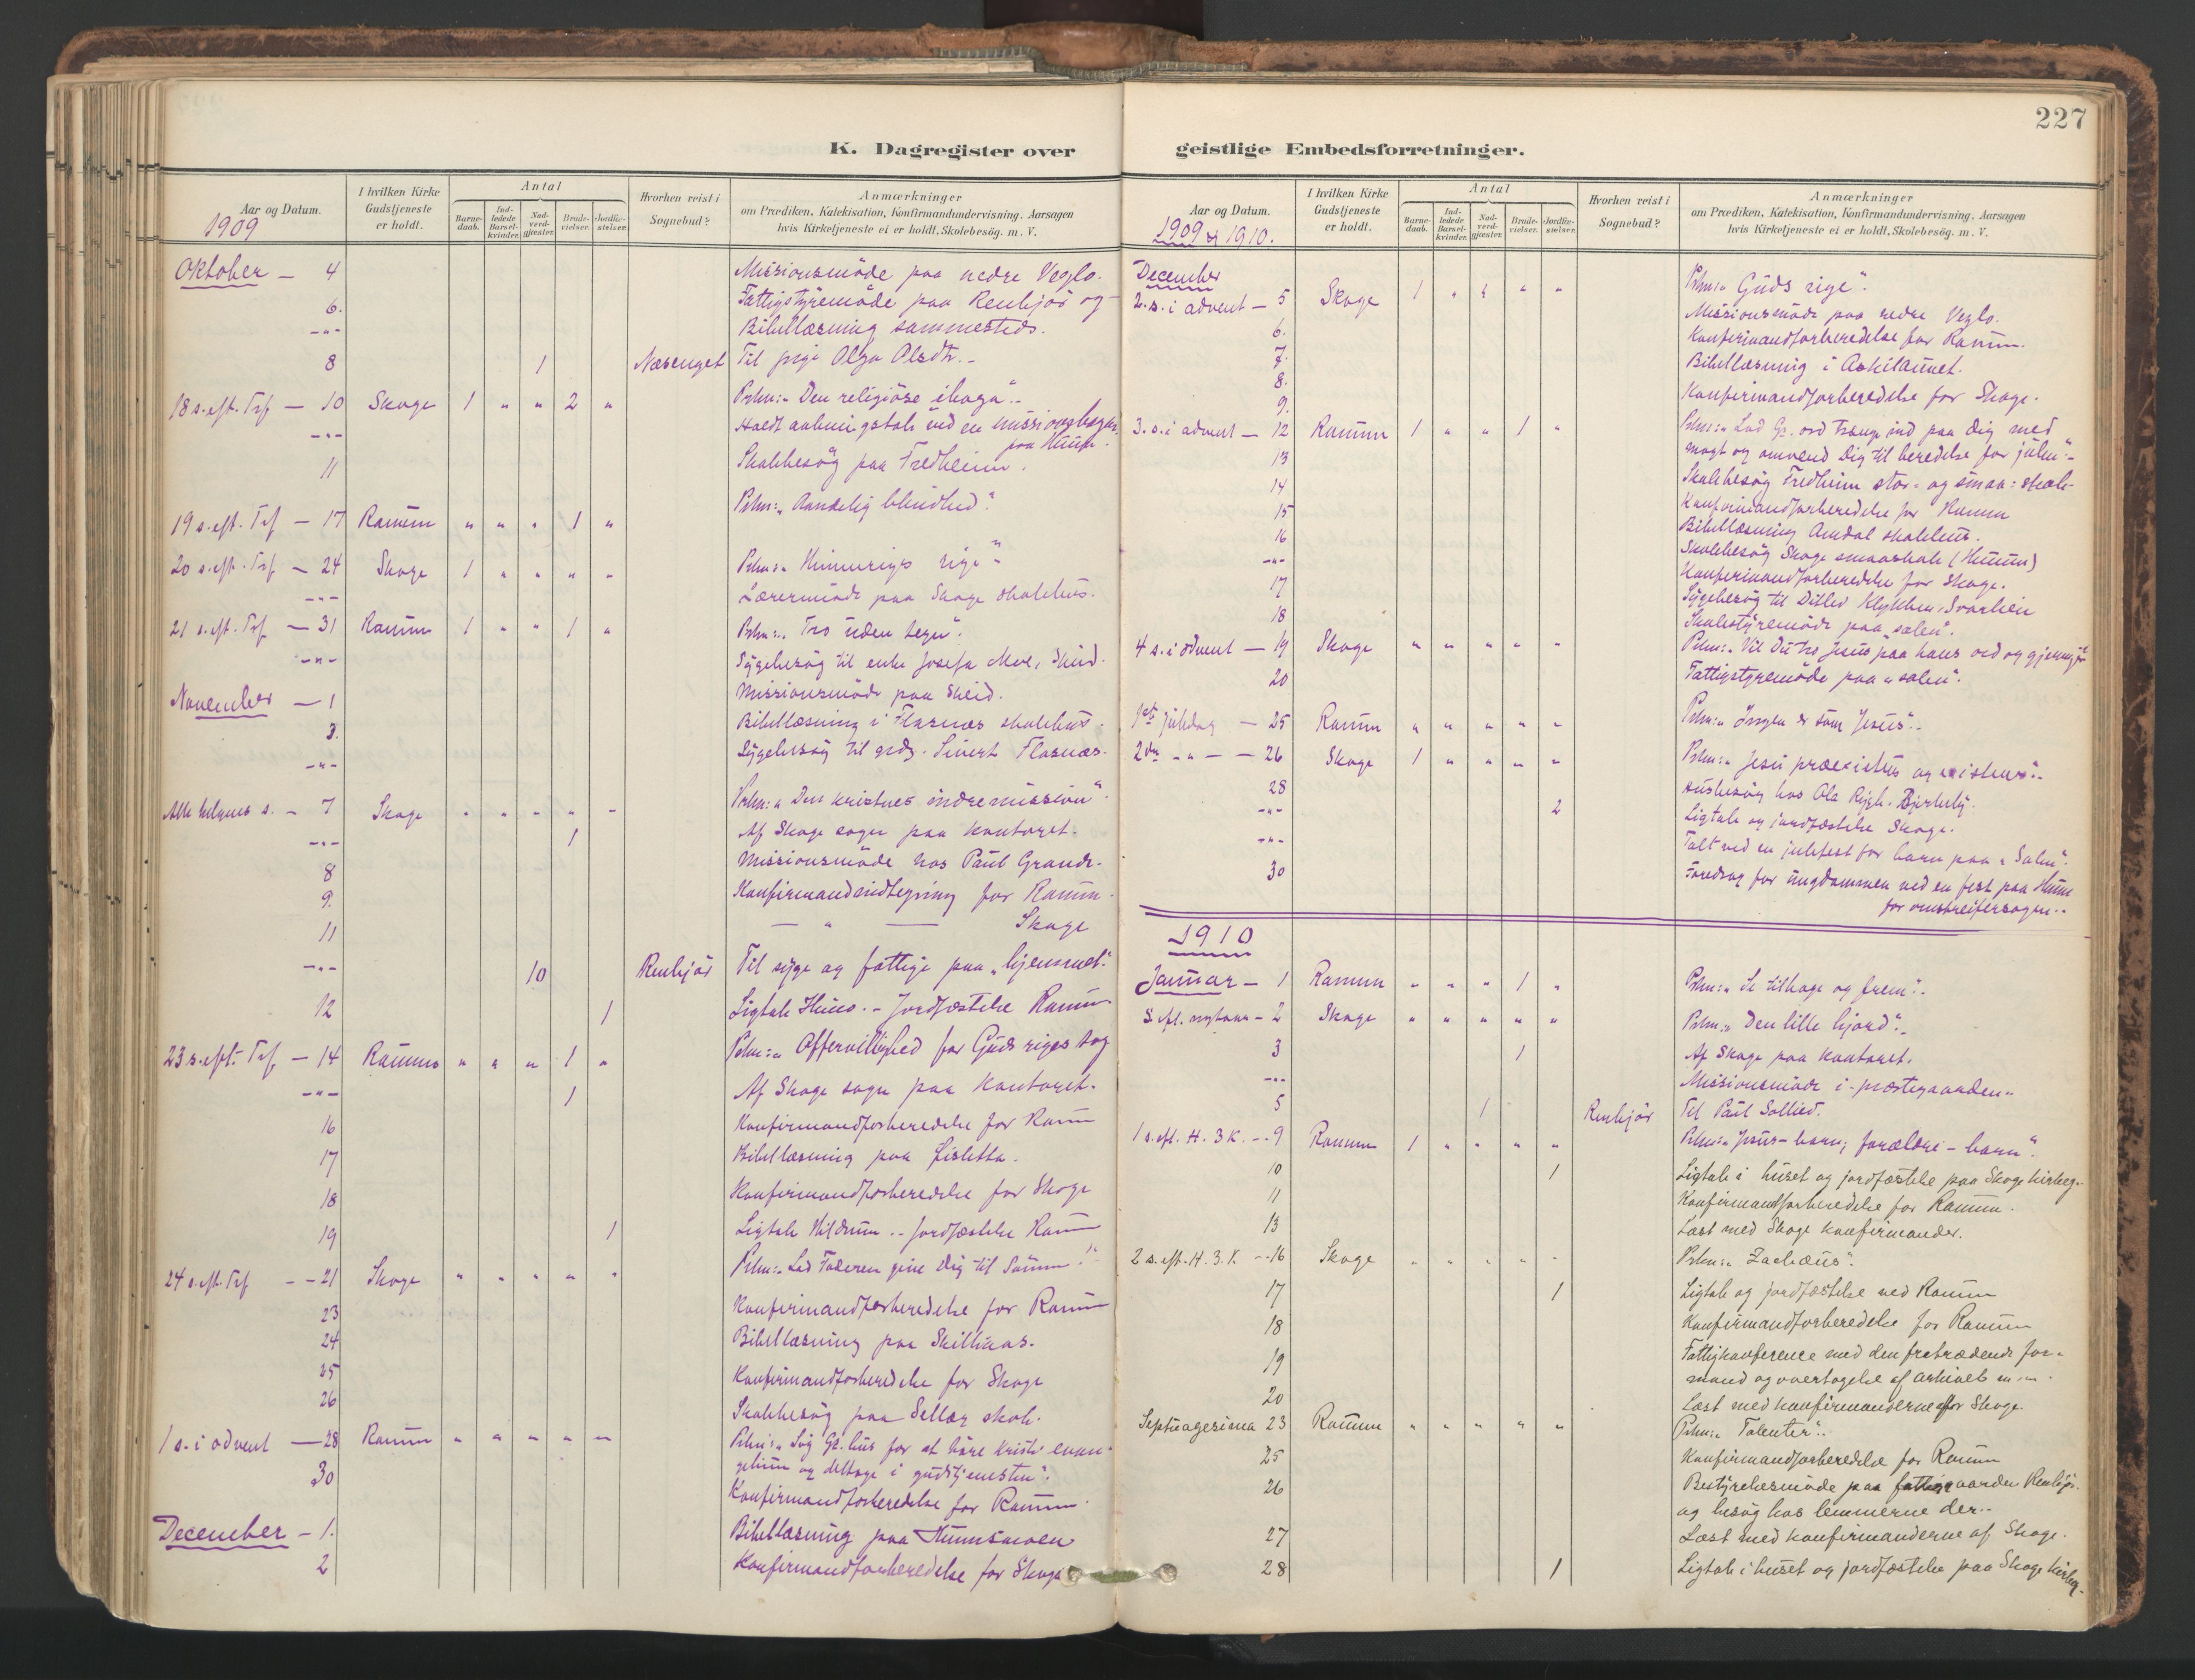 227
K. Dagregister over
geistlige Embedsforretninger.
Aar og Datum.
1909
I hvilken Kirke
Gudstjeneste
er holdt.
Antal
Barne-
daab.
Ind-
ledede
Barsel-
kvinder.
Nad-
verd-
gjæster.
Brude-
vielser.
Jordfæ-
stelser.
Hvorhen reist i
Sognebud?
Anmærkninger
om Prædiken, Katekisation, Konfirmandundervisning. Aarsagen
hvis Kirketjeneste ei er holdt. Skolebesøg. m. V.
Oktober — 4 Missionsmöde paa nedre Veglo.
6. Fattigstyremöde paa Renbjör og
-"- Bibellæsning sammesteds.
8 1 Næsenget Til pige Olga Olsdtr.
18 s. eft. Tref — 10 Skage 1 " " 2 " Prkn: „Den religiöse
-"- Holdt aabningstale ved en missions
paa Hunn.
11 Skolebesøg paa Fredheim.
19 s. eft. Tref — 17 Ranem " " " 1 " Prkn: „Aandelig blindhed".
20 s. eft. Tref — 24 Skage 1 " " " " Prkn: „Himmerigs rige"
-"- Lærermöde paa Skage skolehus.
21 s. eft. Tref — 31 Ranem 1 " " 1 " Prkn: „Tro uden tegn".
-"- Sygebesøg til enke Josefa Moe,
November — 1 Missionsmöde paa Skeid.
3. Bibellæsning i Flasnæs skolehus.
-"- Sygebesøg til grdr. Sivert Flasnæs.
Alle helgens s. — 7 Skage " " " " " Prkn: „Den kristnes indremission".
-"- 1 Af Skage sogn paa kontoret.
8 Missionsmöde hos Paul Grande.
9. Konfirmandindtegning for Ranem.
11 — " — Skage
-"- 10 Renbjör Til syge og fattige paa „hjemmet".
12 1 Ligtale Hunn. - Jordfæstelse Ranem
23 s. eft. Tref — 14 Ranem " " " 1 " Prkn: „Offervillighed for Guds riges sag
-"- 1 Af Skage sogn paa kontoret.
16 Konfirmandforberedelse for Ranem
17 Bibellæsning paa
18 Konfirmandforberedelse for Skage
19 1 Ligtale Hildrum .. jordfæstelse Ranem
24 s. eft. Tref — 21 Skage " " " " " Prkn: „Lad Faderen give dig til Sønnen!"
23 Konfirmandforberedelse for Ranem
24 Bibellæsning paa Skillinaas.
25 Konfirmandforberedelse for Skage
26 Skolebesøg paa Selläg skole.
1 s. i advent — 28 Ranem " " " " " Prkn: „Søg Gs. hus for at høre Kristi evan-
gelium og deltage i gudstjenesten".
30 Konfirmandforberedelse for Ranem.
December — 1. Bibellæsning paa Hunnsmoen
2 Konfirmandforberedelse for Skage
Aar og Datum.
1909 og 1910.
I hvilken Kirke
Gudstjeneste
er holdt.
Antal
Barne-
daab.
Ind-
ledede
Barsel-
kvinder.
Nad-
verd-
gjæster.
Brude-
vielser.
Jordfæ-
stelser.
Hvorhen reist i
Sognebud?
Anmærkninger
om Prædiken, Katekisation, Konfirmandundervisning. Aarsagen
hvis Kirketjeneste ei er holdt. Skolebesøg. m. V.
December
2. s. i advent — 5 Skage 1 " " " " Prkn: „Guds rige".
6. Missionsmöde paa nedre Veglo.
7. Konfirmandforberedelse for Ranem.
8. Bibellæsning i Askilaunet.
9. Konfirmandforberedelse for Skage.
3. s. i advent — 12 Ranem 1 " " 1 " Prkn: „Lad Gs. ord trænge ind paa dig med
magt og omvend dig til beredelse for julen".
13 Skolebesøg Fredheim stor- og smaa-skole
14 Konfirmandforberedelse for Ranem
15 Bibellæsning Amdal skolehus.
16 Skolebesøg Skage smaaskole (Hunn)
-"- Konfirmandforberedelse for Skage.
17 Sygebesøg til Ditlev Klykken, Svarlien
18 Skolestyremöde paa „salen".
4 s. i advent — 19 Skage " " " " " Prkn: „Vil du tro Jesus paa hans ord og gjerning?"
20 Fattigstyremöde paa „salen".
1ste juledag — 25 Ranem " " " " " Prkn: „Ingen er som Jesus".
2den -"- — 26 Skage 1 " " " " Prkn: „Jesu præexistens og existens".
28 Husbesøg hos Ole Rygh. Bjerkely.
-"- 2 Ligtale og jordfæstelse Skage.
-"- Talt ved en julefest for barn paa „Salen".
30 Foredrag for ungdommen ved en fest paa Hunn
for omstreifersagen.
1910
Januar — 1 Ranem " " " 1 " Prkn: „Se tilbage og frem".
S. eft. nytaar — 2 Skage " " " " " Prkn: „Den lille hjord".
3 1 Af Skage paa kontoret.
-"- Missionsmöde i præstegaarden.
5 1 Renbjör Til Paul Sollied.
1 s. eft. H. 3 K. — 9 Ranem 1 " " " " Prkn: „Jesus-barn; forældre-barn".
10 1 Ligtale i huset og jordfæstelse paa Skage kirkeg.
11 Konfirmandforberedelse for Ranem.
13 Læst med Skage konfirmander.
2 s. eft. H. 3. K. — 16 Skage " " " " " Prkn: „Zachæus".
17 1 Ligtale og jordfæstelse ved Ranem
18 Konfirmandforberedelse for Ranem
19 Fattigkonference med den fratrædende for-
mand og overtagelse af arkivet m. m.
20 Læst med konfirmanderne for Skage.
Septuagesima 23 Ranem " " " " " Prkn: „Talenter".
25 Konfirmandforberedelse for Ranem
26 Bestyrelsesmöde paa fattiggaarden Renbjör.
og besøg hos lemmerne der.
27 Læst med konfirmanderne af Skage.
28 1 Ligtale i huset og jordfæstelse paa Skage kirkeg.